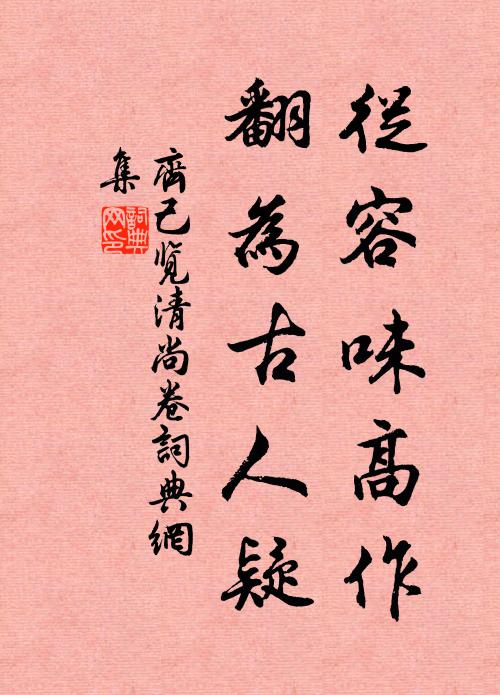 從容味高作
翻為古人疑
齊己覽清尚卷詞典網
集
詞典
网印